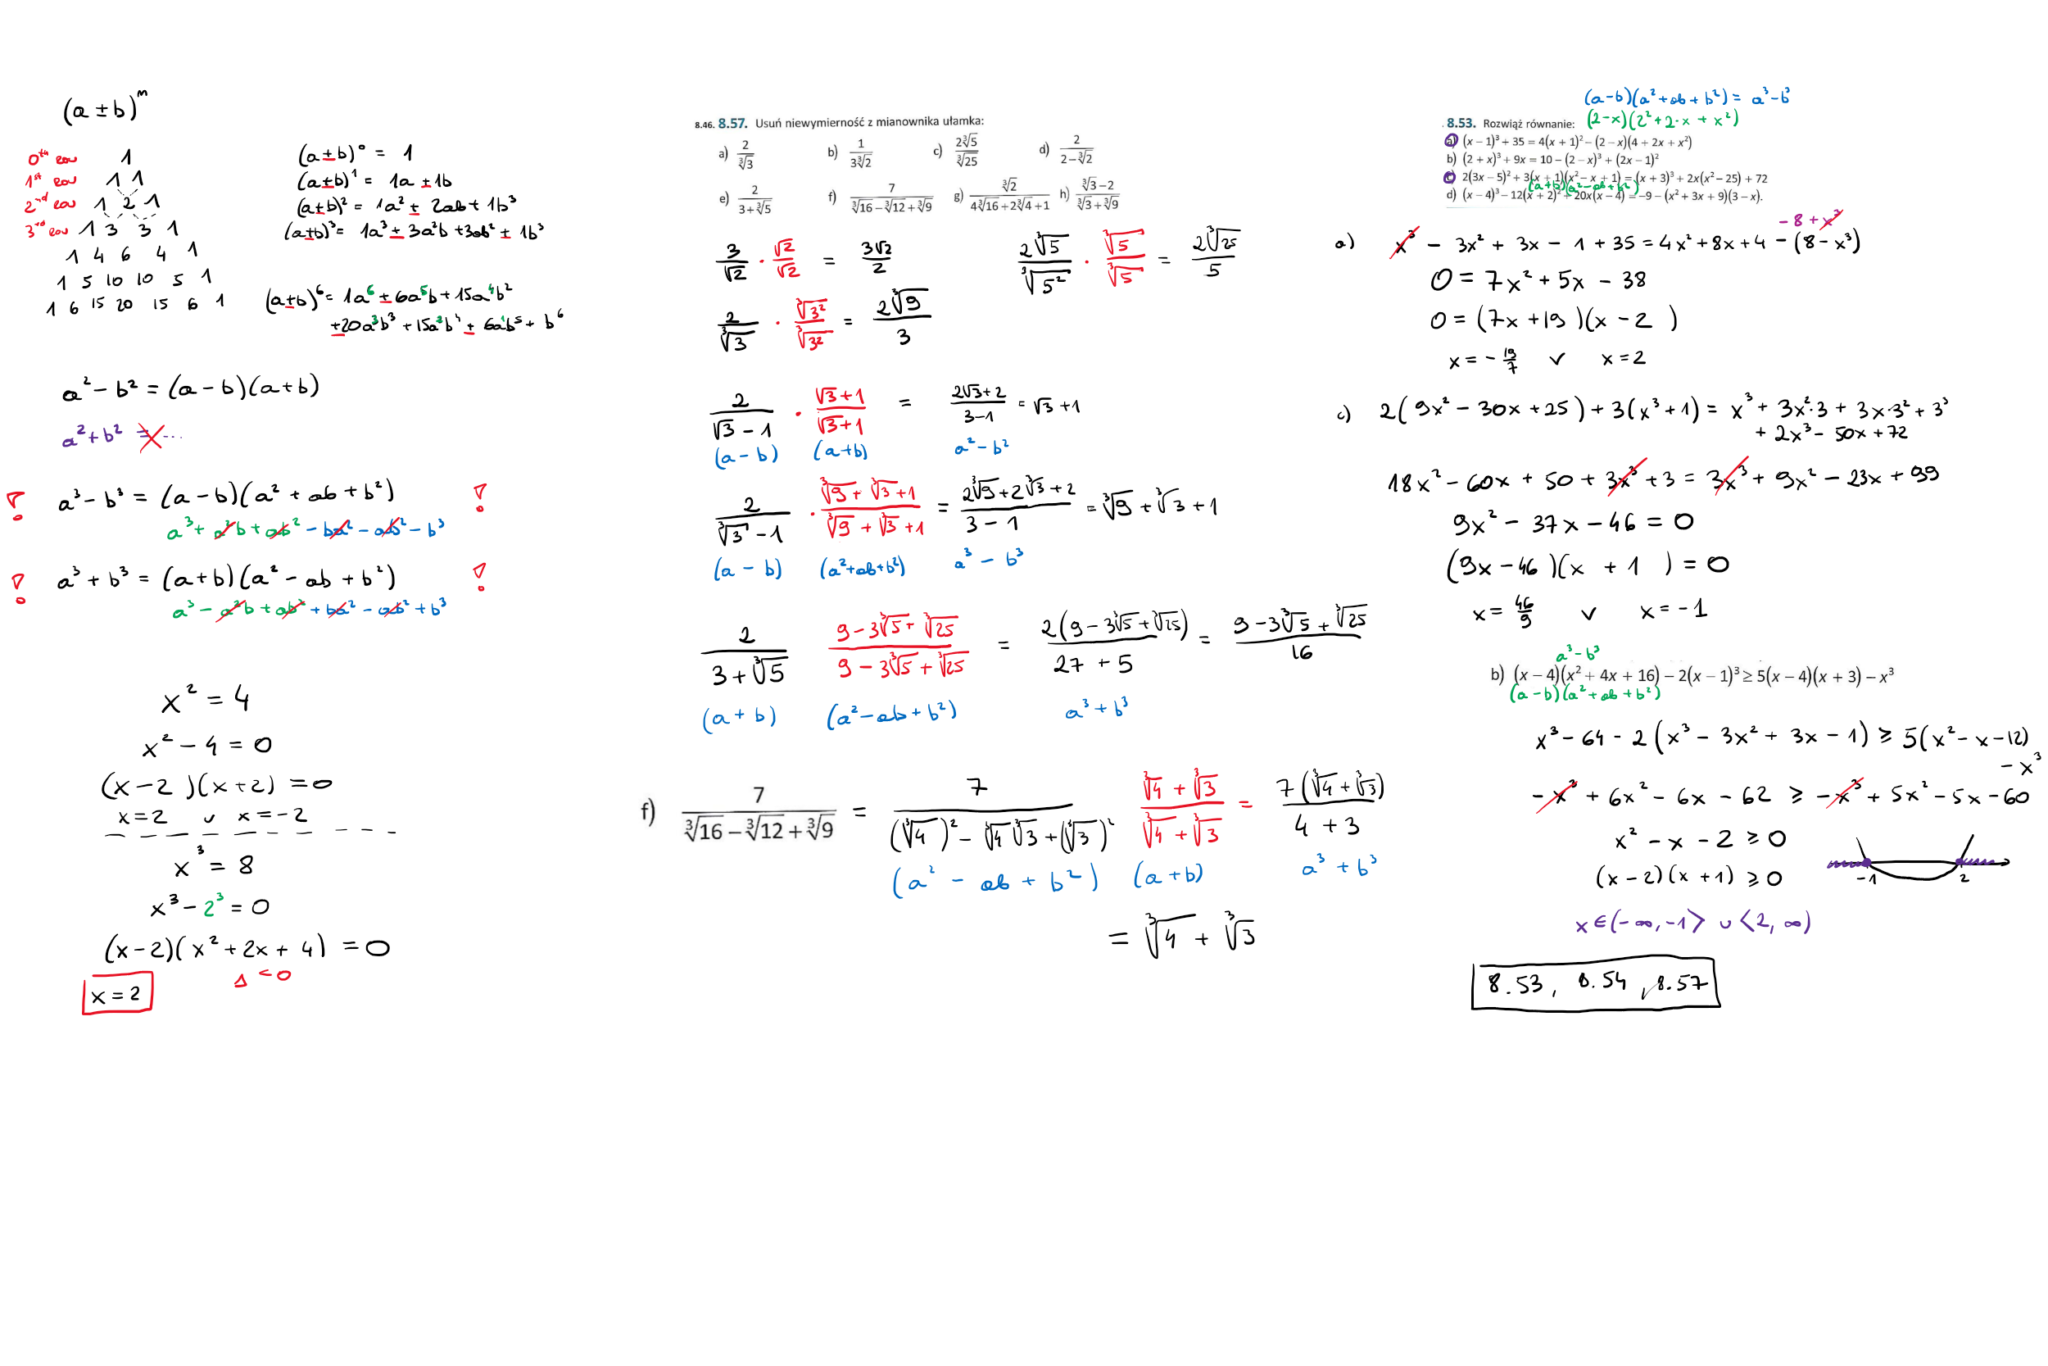 (a ± b)ⁿ
0th row 1
1st row 1 1
2nd row 1 2 1
3rd row 1 3 3 1
1 4 6 4 1
1 5 10 10 5 1
1 6 15 20 15 6 1
(a±b)⁰ = 1
(a±b)¹ = 1a ± 1b
(a±b)² = 1a² ± 2ab + 1b³
(a±b)³ = 1a³ ± 3a²b + 3ab² ± 1b³
(a±b)⁶ = 1a⁶ ± 6a⁵b + 15a⁴b²
±20a³b³ + 15a²b⁴ ± 6a¹b⁵ + b⁶
a² − b² = (a − b)(a + b)
a² + b² = ...
! a³ − b³ = (a − b)(a² + ab + b²) !
a³ + a²b + ab² − ba² − ab² − b³
! a³ + b³ = (a + b)(a² − ab + b²) !
a³ − a²b + ab² + ba² − ab² + b³
x² = 4
x² − 4 = 0
(x − 2)(x + 2) = 0
x = 2 ∨ x = −2
x³ = 8
x³ − 2³ = 0
(x − 2)(x² + 2x + 4) = 0
Δ < 0
x = 2
8.46. 8.57. Usuń niewymierność z mianownika ułamka:
a) 2/∛3 b) 1/(3∛2) c) 2∛5/∛25 d) 2/(2 − ∛2)
e) 2/(3 + ∛5) f) 7/(∛16 − ∛12 + ∛9) g) ∛2/(4∛16 + 2∛4 + 1) h) (∛3 − 2)/(∛3 + ∛9)
3/√2 · √2/√2 = 3√2/2
2∛5/∛5² · ∛5/∛5 = 2∛25/5
2/∛3 · ∛3²/∛3² = 2∛9/3
2/(√3 − 1) · (√3 + 1)/(√3 + 1) = (2√3 + 2)/(3 − 1) = √3 + 1
(a − b) (a + b) a² − b²
2/(∛3 − 1) · (∛9 + ∛3 + 1)/(∛9 + ∛3 + 1) = (2∛9 + 2∛3 + 2)/(3 − 1) = ∛9 + ∛3 + 1
(a − b) (a² + ab + b²) a³ − b³
2/(3 + ∛5) (9 − 3∛5 + ∛25)/(9 − 3∛5 + ∛25) = 2(9 − 3∛5 + ∛25)/(27 + 5) = (9 − 3∛5 + ∛25)/16
(a + b) (a² − ab + b²) a³ + b³
f) 7/(∛16 − ∛12 + ∛9) = 7/((∛4)² − ∛4∛3 + (∛3)²) (∛4 + ∛3)/(∛4 + ∛3) = 7(∛4 + ∛3)/(4 + 3)
(a² − ab + b²) (a + b) a³ + b³
= ∛4 + ∛3
(a−b)(a² + ab + b²) = a³ − b³
8.53. Rozwiąż równanie: (2−x)(2² + 2·x + x²)
a) (x − 1)³ + 35 = 4(x + 1)² − (2 − x)(4 + 2x + x²)
b) (2 + x)³ + 9x = 10 − (2 − x)³ + (2x − 1)²
c) 2(3x − 5)² + 3(x + 1)(x² − x + 1) = (x + 3)³ + 2x(x² − 25) + 72
(a+b)(a² − ab + b²)
d) (x − 4)³ − 12(x + 2)² + 20x(x − 4) = −9 − (x² + 3x + 9)(3 − x).
− 8 + x³
a) x³ − 3x² + 3x − 1 + 35 = 4x² + 8x + 4 − (8 − x³)
0 = 7x² + 5x − 38
0 = (7x + 19)(x − 2)
x = −19/7 ∨ x = 2
c) 2(9x² − 30x + 25) + 3(x³ + 1) = x³ + 3x²·3 + 3x·3² + 3³
+ 2x³ − 50x + 72
18x² − 60x + 50 + 3x³ + 3 = 3x³ + 9x² − 23x + 99
9x² − 37x − 46 = 0
(9x − 46)(x + 1) = 0
x = 46/9 ∨ x = −1
a³ − b³
b) (x − 4)(x² + 4x + 16) − 2(x − 1)³ ≥ 5(x − 4)(x + 3) − x³
(a − b)(a² + ab + b²)
x³ − 64 − 2(x³ − 3x² + 3x − 1) ≥ 5(x² − x − 12)
− x³
−x³ + 6x² − 6x − 62 ≥ −x³ + 5x² − 5x − 60
x² − x − 2 ≥ 0
(x − 2)(x + 1) ≥ 0
−1 2
x ∈ (−∞, −1> ∪ <2, ∞)
8.53, 8.54, 8.57